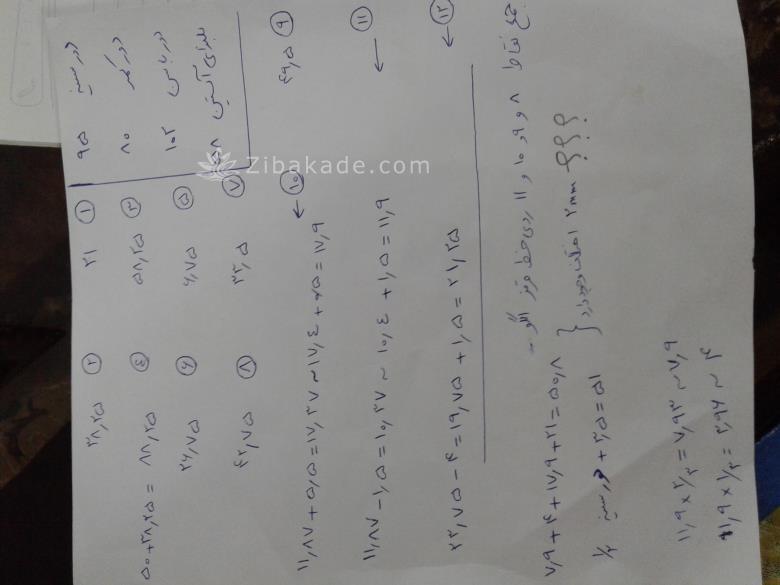 دور سینه ۹۵
دور کمر ۸۰
دور باسن ۱۰۲
بلندی آستین ۵۸
① ۲۱
② ۳۸,۲۵
③ ۵۸,۲۵
④ ۵۰+۳۸,۲۵ = ۸۸,۲۵
⑤ ۶,۷۵
⑥ ۲۶,۷۵
⑦ ۲۲,۵
⑧ ۴۲,۷۵
⑨ ۴۹,۵
⑩ ← ۱۱,۸۷ + ۵,۵ = ۱۷,۳۷ ~ ۱۷,۴ + ۰,۵ = ۱۷,۹
⑪ ← ۱۱,۸۷ - ۱,۵ = ۱۰,۳۷ ~ ۱۰,۴ + ۱,۵ = ۱۱,۹
⑫ ← ۲۳,۷۵ - ۴ = ۱۹,۷۵ + ۱,۵ = ۲۱,۲۵
جمع نقاط ۸ و ۹ و ۱۰ و ۱۱ روی خط قرمز الگو
۷,۹ + ۴ + ۱۷,۹ + ۲۱ = ۵۰,۸
۱/۲ دور سینه + ۳,۵ = ۵۱
} ۲ mm اختلاف وجود دارد ؟؟؟
۱۱,۹ × ۲/۳ = ۷,۹۳ ~ ۷,۹
۱۱,۹ × ۱/۳ = ۳,۹۶ ~ ۴
Zibakade.com